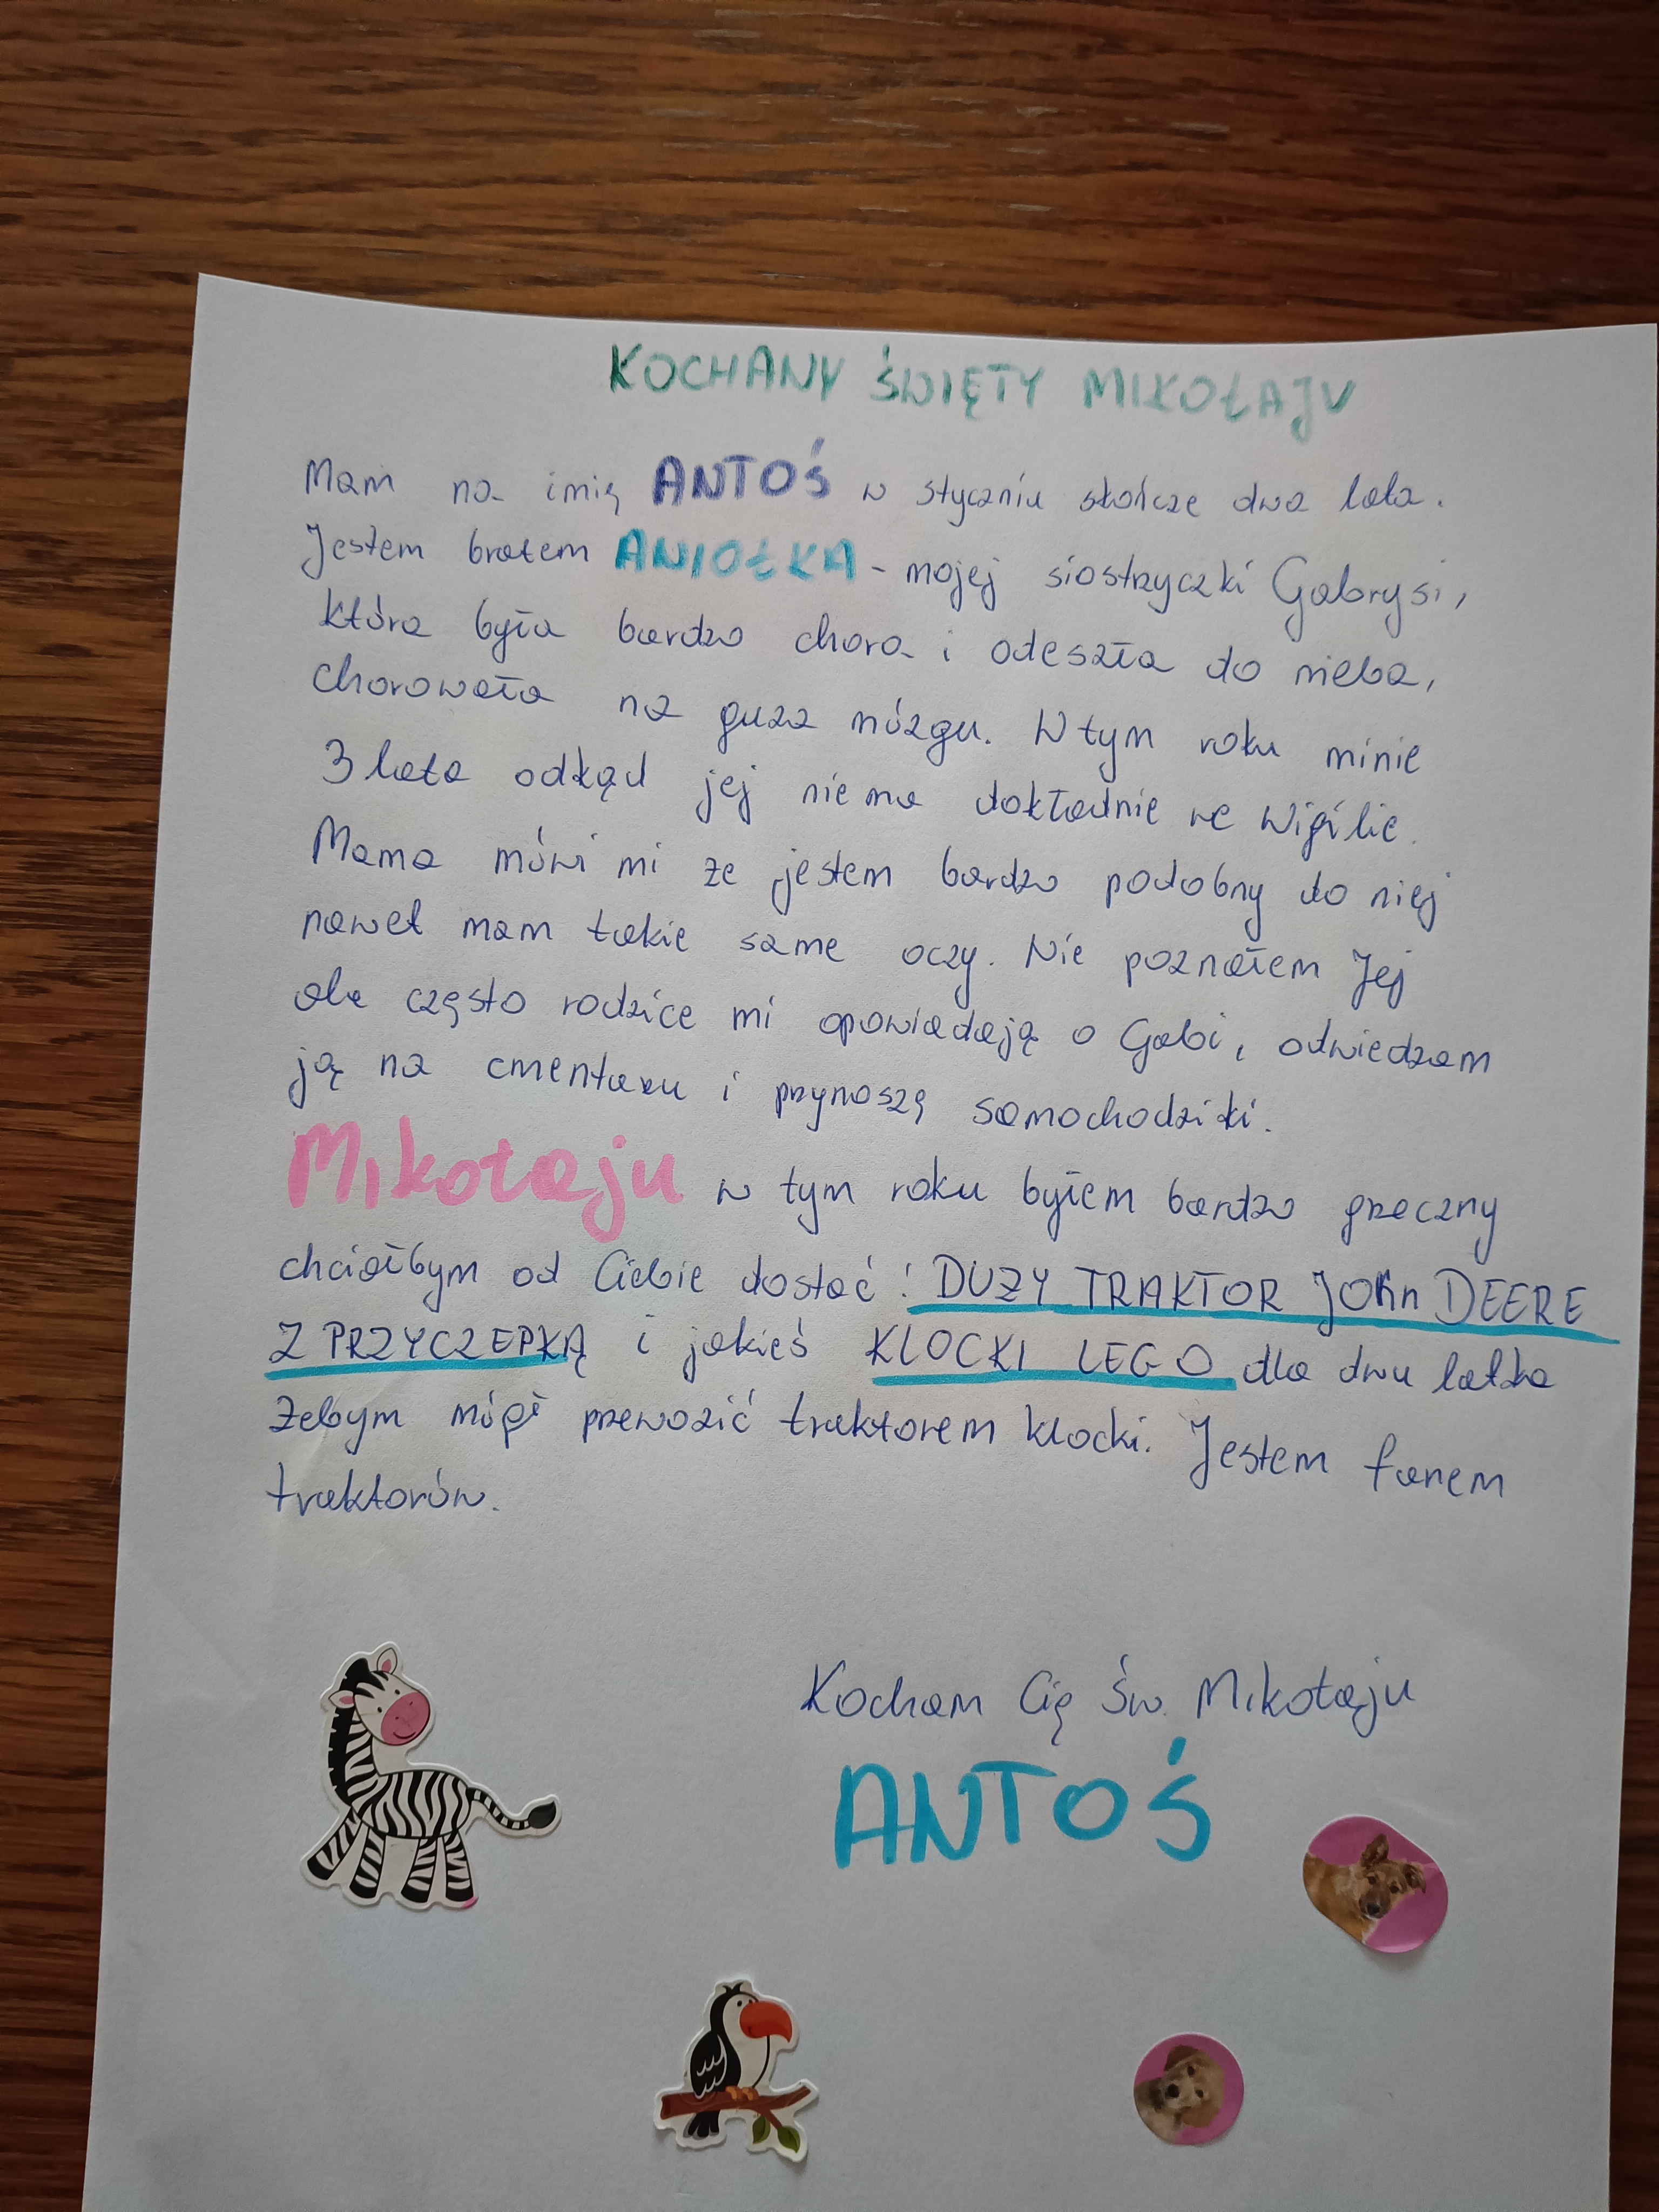 KOCHANY ŚWIĘTY MIKOŁAJU
Mam na imię ANTOŚ w styczniu skończe dwa lata.
Jestem bratem ANIOŁKA - mojej siostrzyczki Gabrysi,
która była bardzo chora i odeszła do nieba,
chorowała na guza mózgu. W tym roku minie
3 lata odkąd jej nie ma dokładnie we Wigilie.
Mama mówi mi że jestem bardzo podobny do niej
nawet mam takie same oczy. Nie poznałem Jej
ale często rodzice mi opowiadają o Gabi, odwiedzam
ją na cmentarzu i przynoszę samochodziki.
Mikołaju w tym roku byłem bardzo grzeczny
chciałbym od Ciebie dostać: DUŻY TRAKTOR JOHn DEERE
Z PRZYCZEPKĄ i jakieś KLOCKI LEGO dla dwu latka
żebym mógł przewozić traktorem klocki. Jestem fanem
traktorów.
Kocham Cię Św. Mikołaju
ANTOŚ